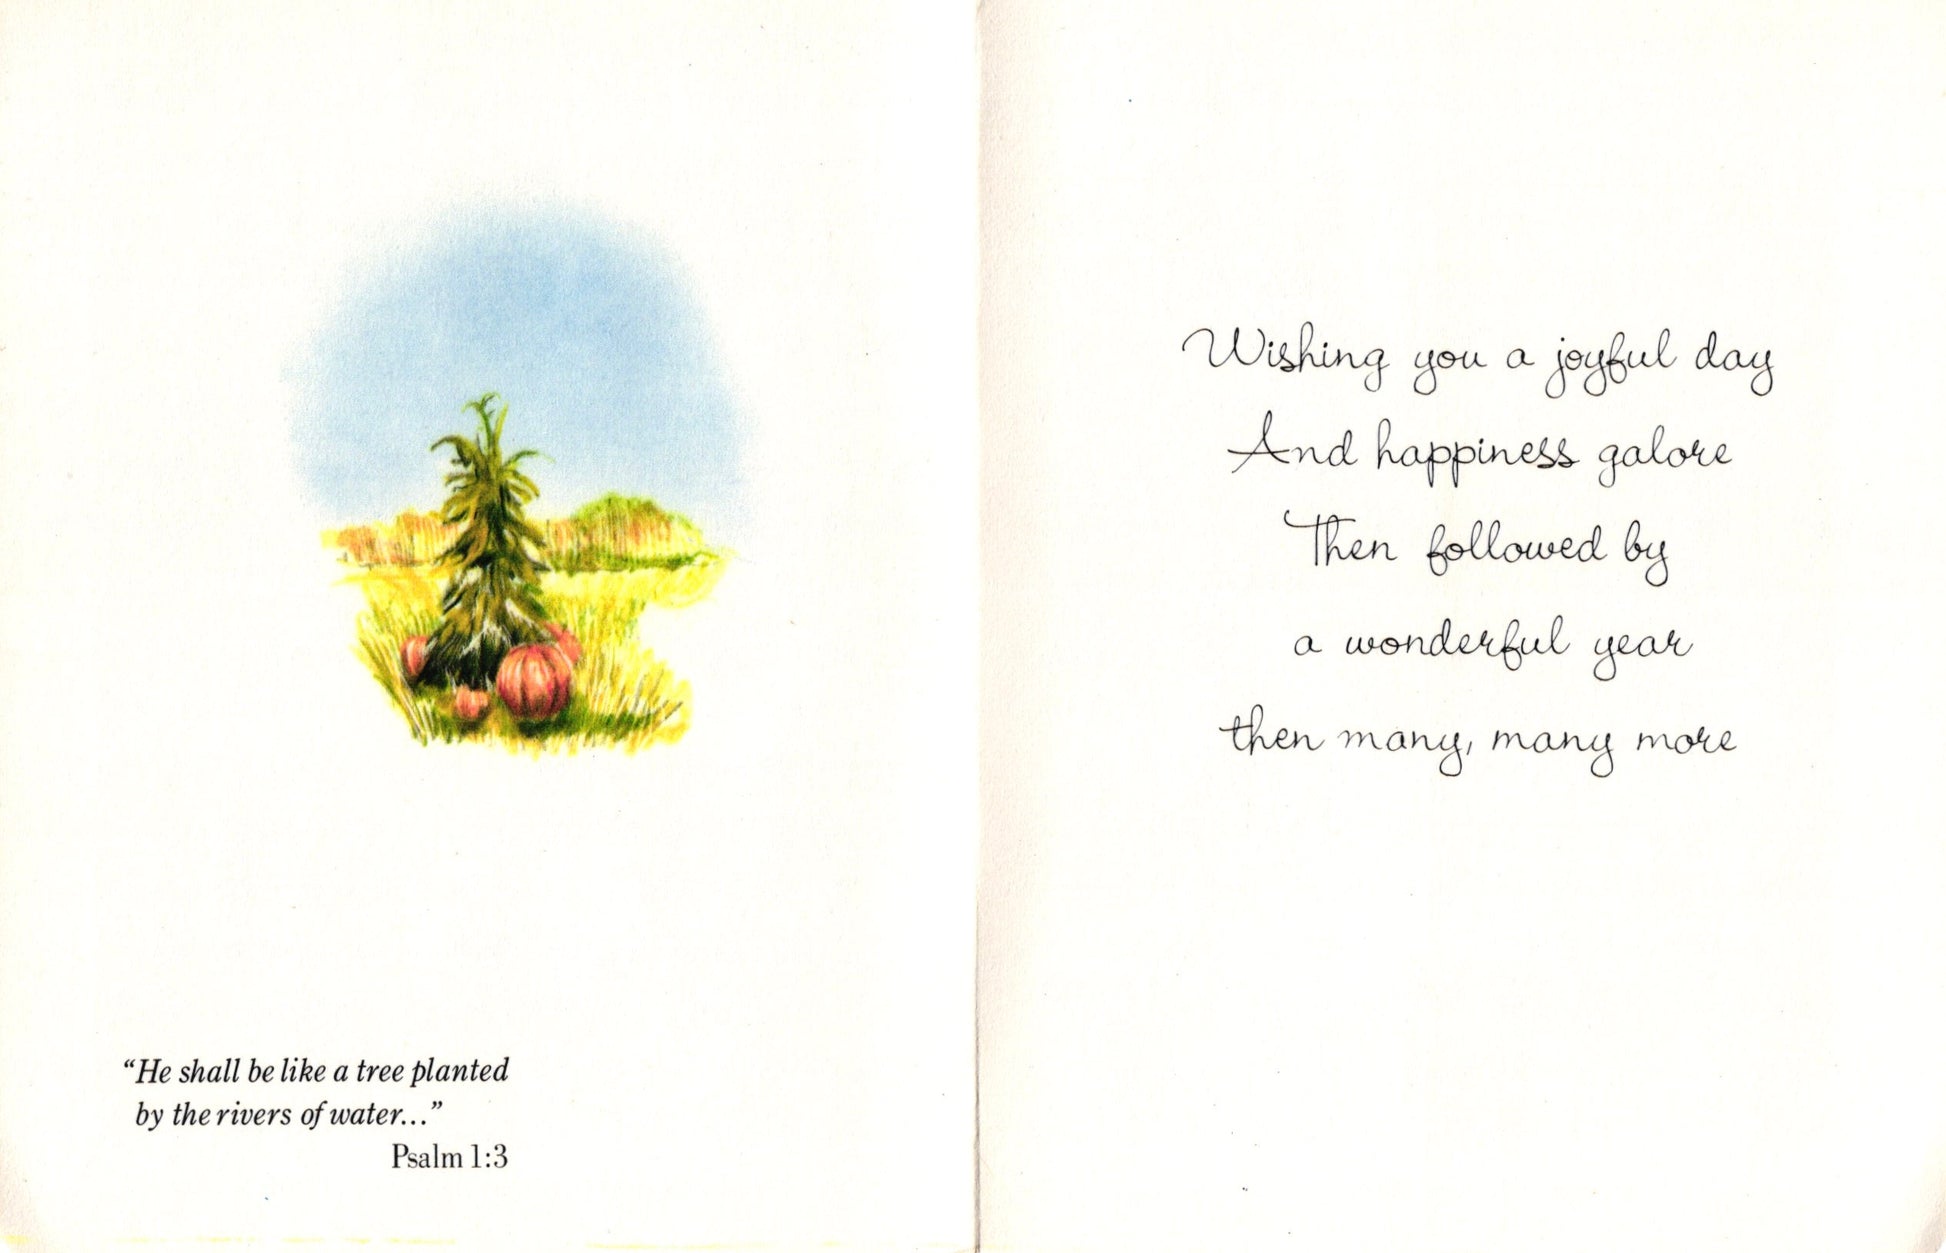 “He shall be like a tree planted
by the rivers of water...”
Psalm 1:3
Wishing you a joyful day
And happiness galore
Then followed by
a wonderful year
then many, many more